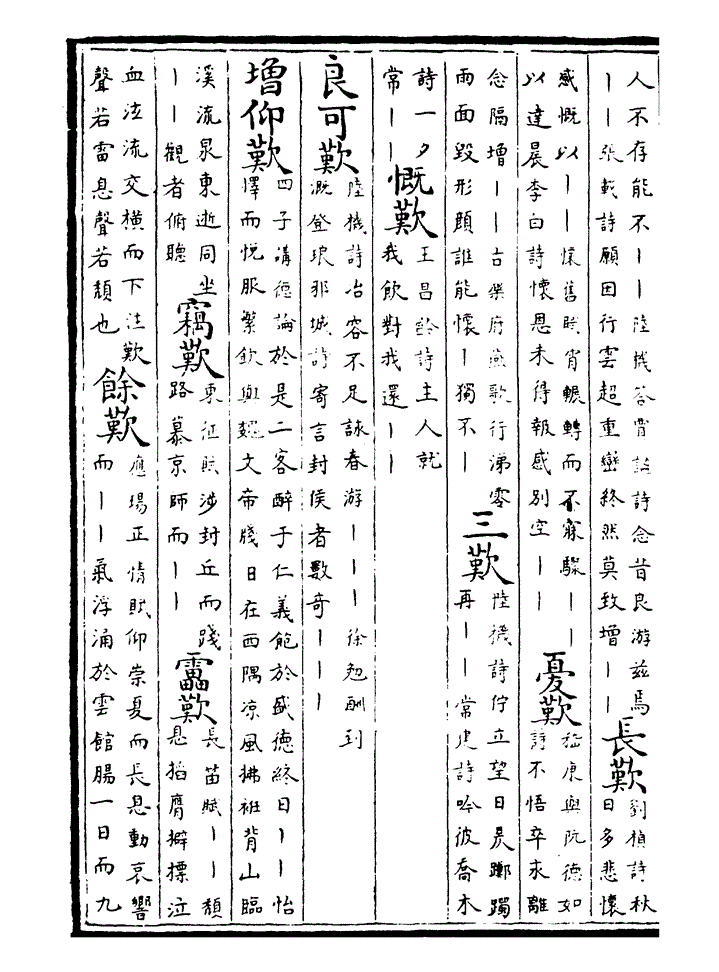 人不存能不丨丨陸機答賈謐詩念昔良游茲焉
丨丨張載詩願因行雲超重巒終然莫致增丨丨
長歎
劉楨詩秋
日多悲懷
感慨以丨丨懷舊賦宵輾轉而不寐驟丨丨
以達晨李白詩懷恩未得報感別空丨丨
憂歎
嵇康與阮德如
詩不悟卒永離
念隔增丨丨古樂府燕歌行涕零
雨面毀形顏誰能懷丨獨不丨
三歎
陸機詩佇立望日昃躑躅
再丨丨常建詩吟彼喬木
詩一夕
常丨丨
慨歎
王昌齡詩主人就
我飲對我還丨丨
良可歎
陸機詩冶容不足詠春游丨丨丨徐勉酬到
溉登琅邪城詩寄言封侯者數奇丨丨丨
增仰歎
四子講德論於是二客醉于仁義飽於盛德終日丨丨怡
懌而悅服繁欽與魏文帝牋日在西隅凉風拂袵背山臨
溪流泉東逝同坐
丨丨觀者俯聽
竊歎
東征賦涉封丘而踐
路慕京師而丨丨
靁歎
長笛賦丨丨頹
息掐膺擗摽泣
血泣流交橫而下注歎
聲若雷息聲若頹也
餘歎
應瑒正情賦仰崇夏而長息動哀響
而丨丨氣浮涌於雲館腸一日而九